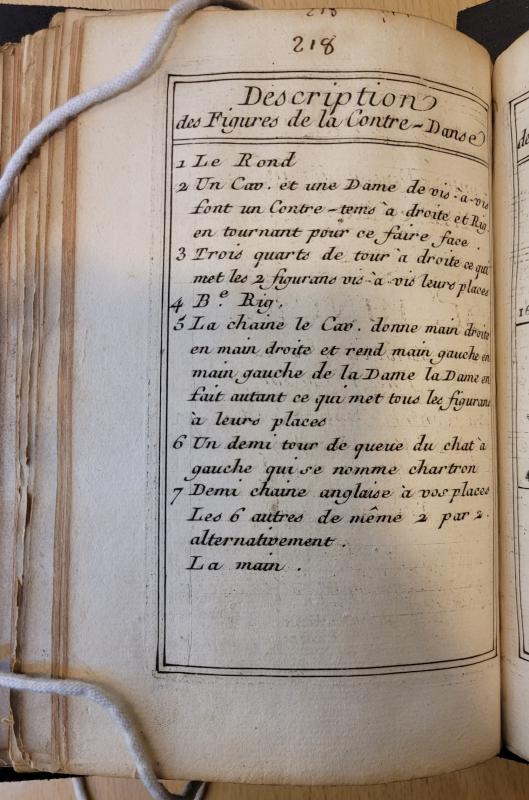 218
Description
des Figures de la Contre-Danse
1 Le Rond
2 Un Cav. et une Dame de vis-à-vis
font un Contre-tems à droite et Rig.
en tournant pour ce faire face.
3 Trois quarts de tour à droite ce qui
met les 2 figurans vis-à-vis leurs places
4 B.e Rig.
5 La chaine le Cav. donne main droite
en main droite et rend main gauche en
main gauche de la Dame la Dame en
fait autant ce qui met tous les figurans
à leurs places
6 Un demi tour de queue du chat à
gauche qui se nomme chartron
7 Demi chaine anglaise à vos places
Les 6 autres de même 2 par 2.
alternativement.
La main.